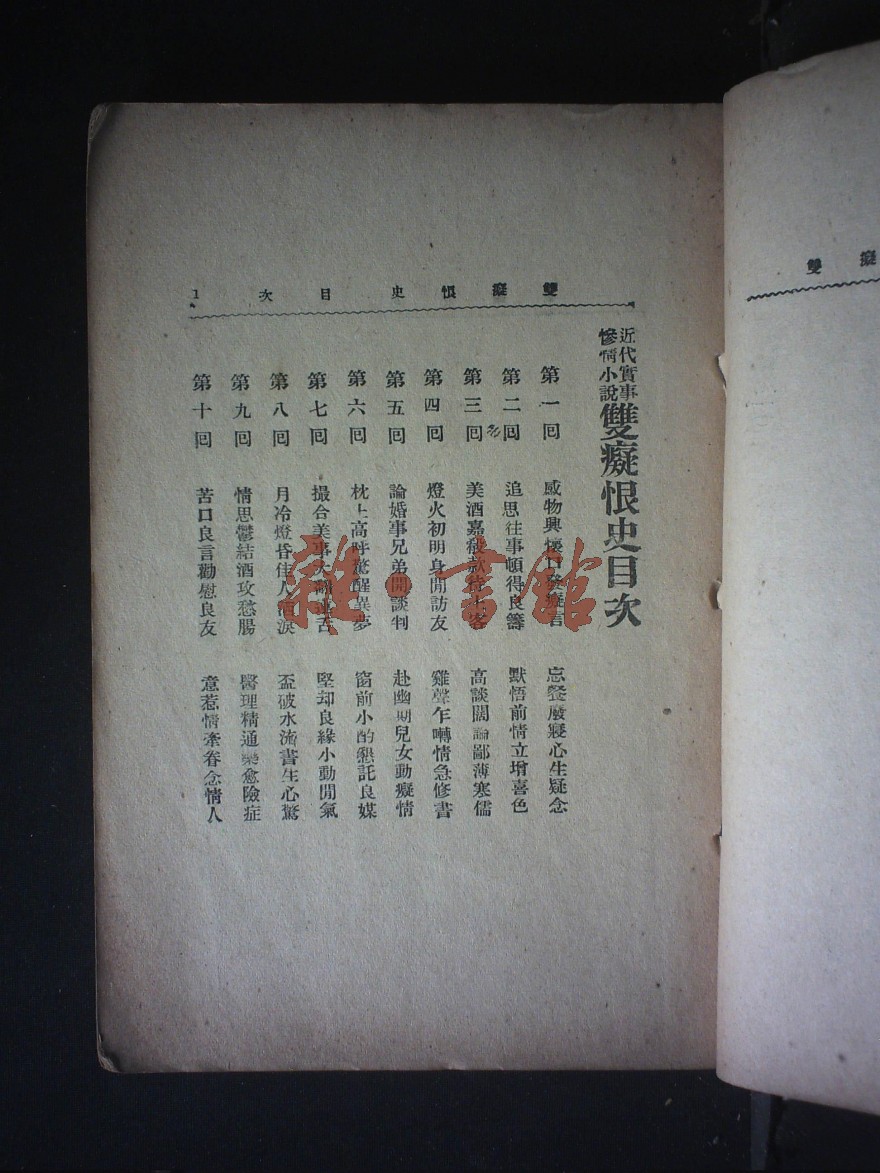 雙癡恨史 目次 1
近代實事
慘情小說
雙癡恨史目次
第一回 感物興懷口發癡言 忘餐廢寢心生疑念
第二回 追思往事頓得良籌 默悟前情立增喜色
第三回 美酒嘉殽款待 客 高談闊論鄙薄寒儒
第四回 燈火初明身閒訪友 雞聲乍囀情急修書
第五回 論婚事兄弟開談判 赴幽期兒女動癡情
第六回 枕上高呼驚醒異夢 窗前小酌懇託良媒
第七回 撮合美事大 舌 堅却良緣小動閒氣
第八回 月冷燈昏佳人洒淚 盃破水流書生心驚
第九回 情思鬱結酒攻愁腸 醫理精通藥愈險症
第十回 苦口良言勸慰良友 意惹情牽眷念情人
雜·書館
雙癡